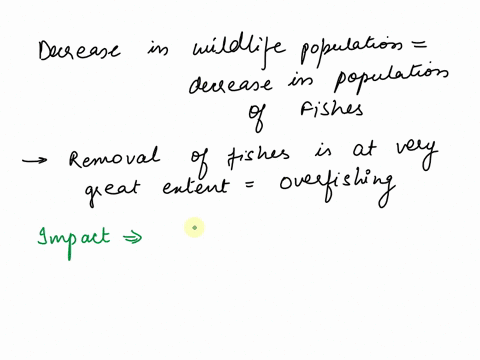 Decrease in wildlife population =
decrease in population
of Fishes
→ Removal of fishes is at very
great extent = overfishing
Impact ⇒